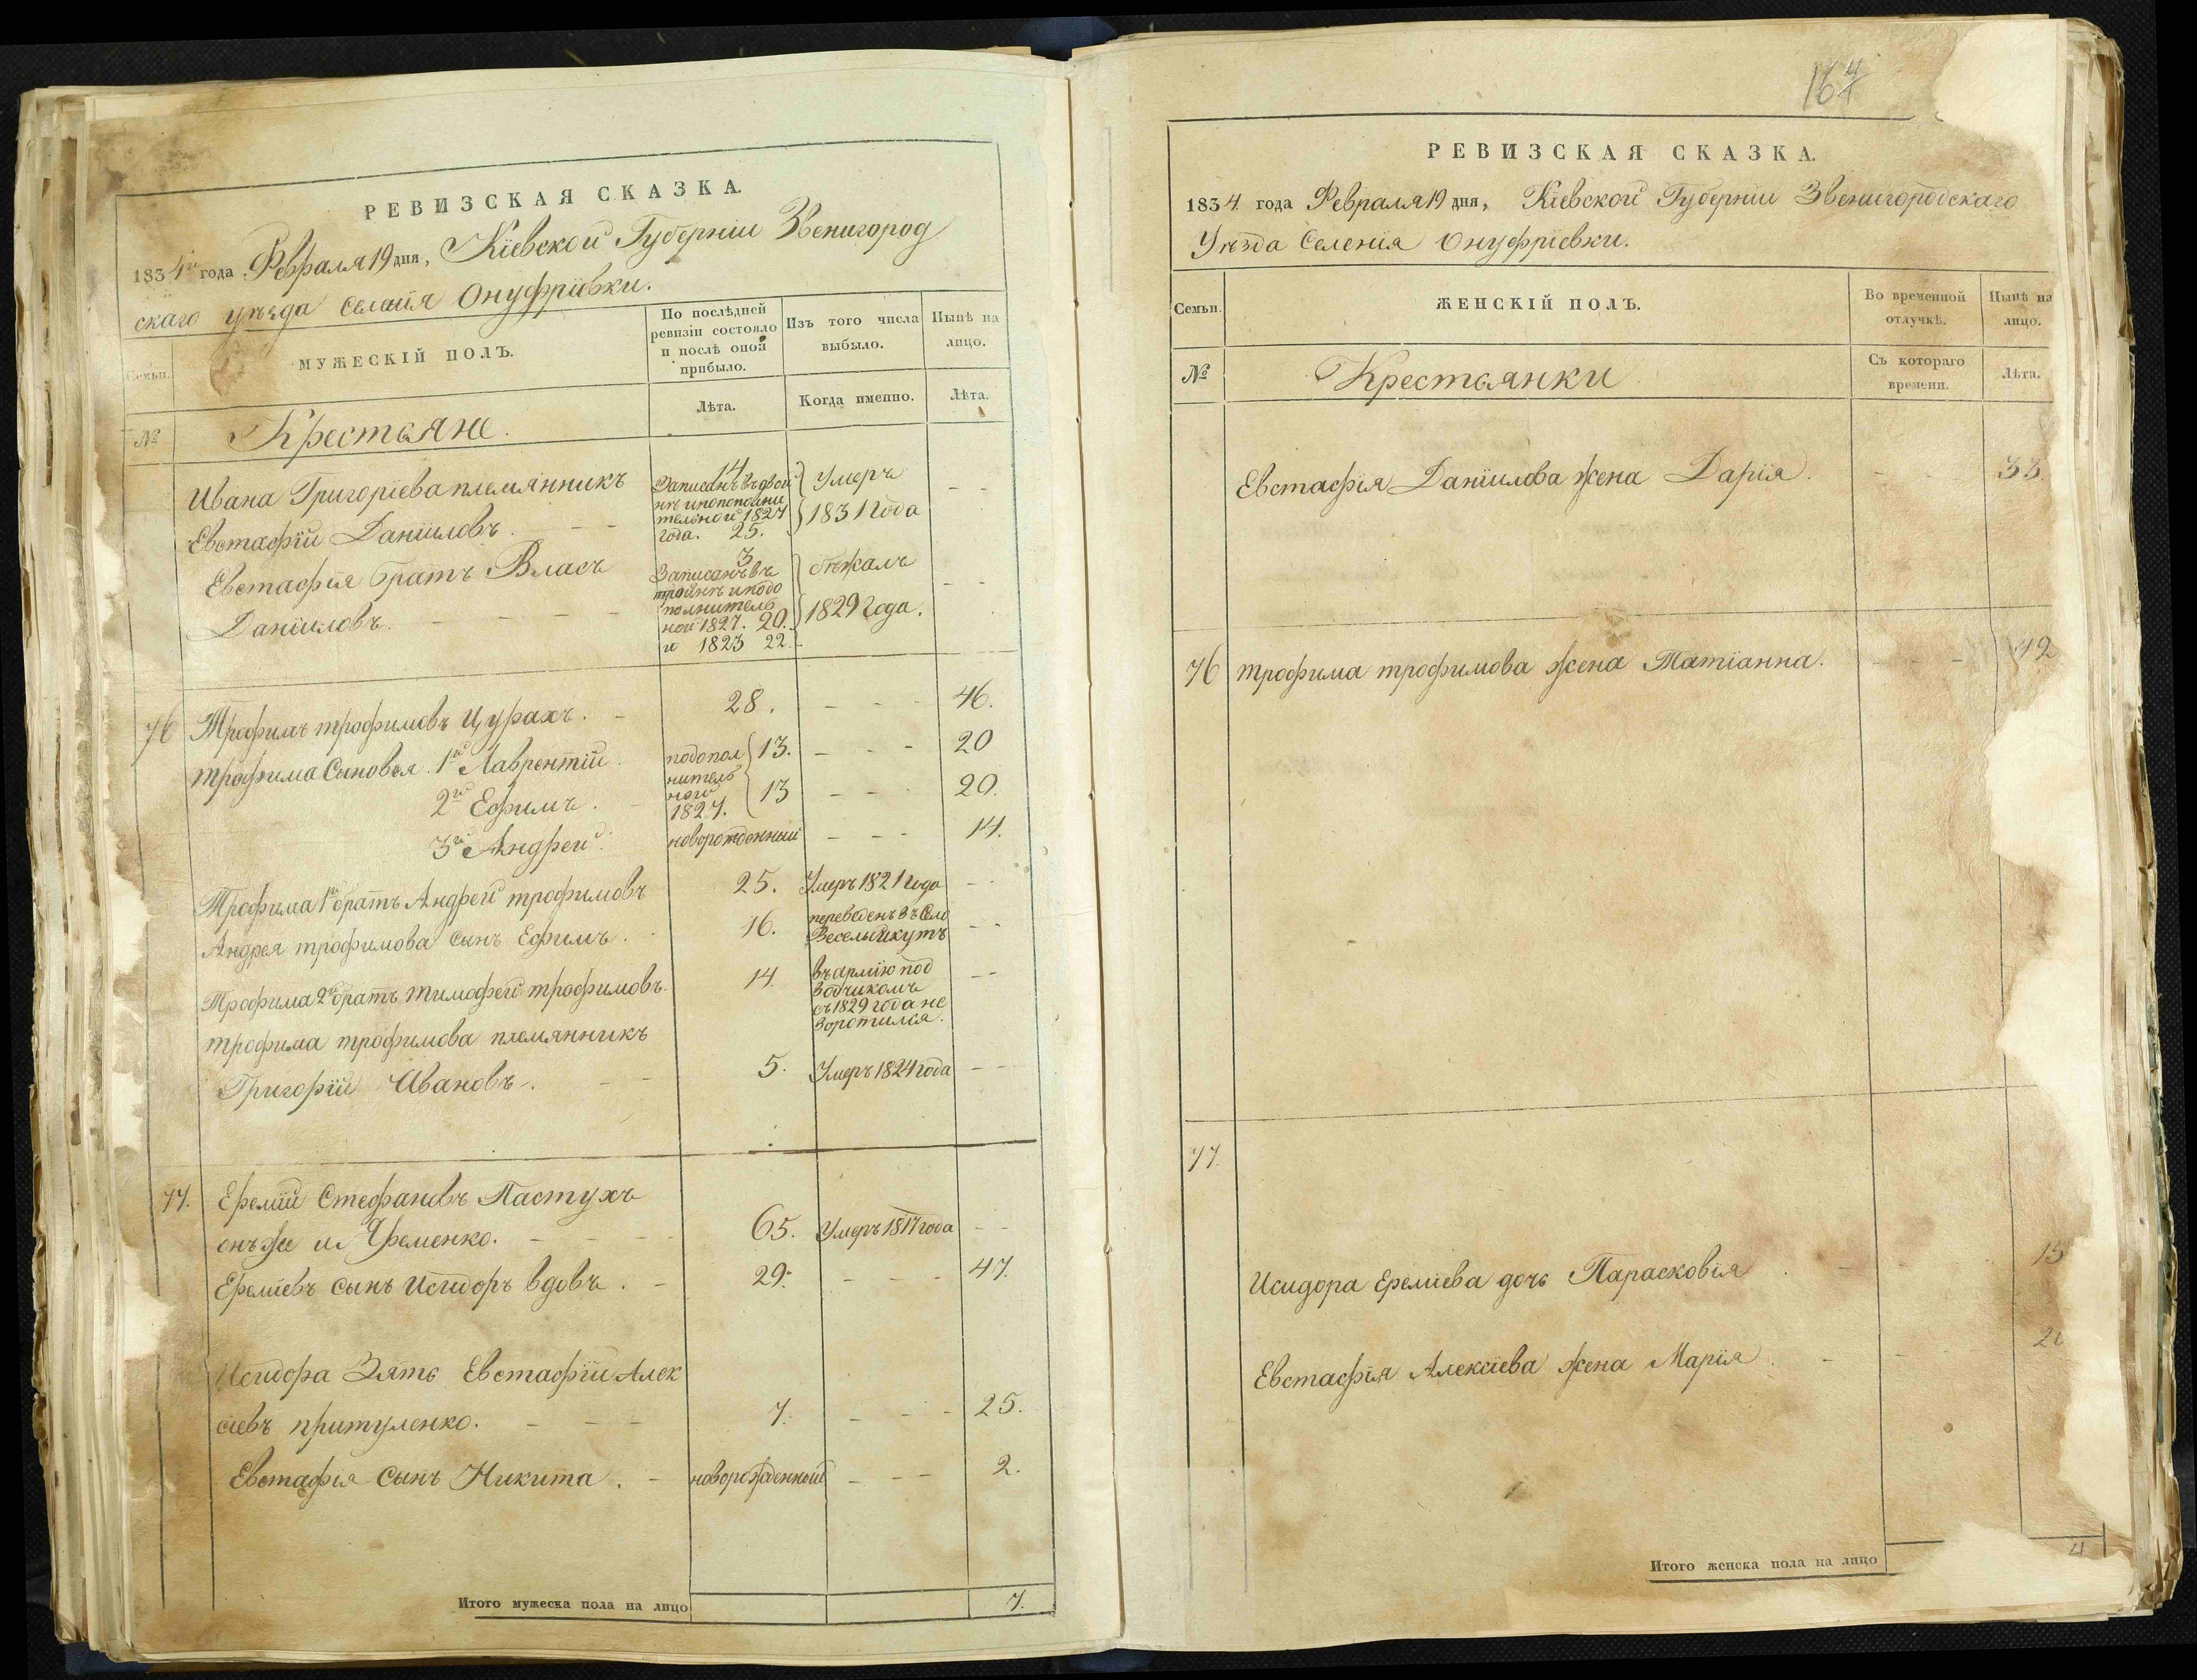 РЕВИЗСКАЯ СКАЗКА.
1834го года Февраля 19 дня, Кіевской Губерніи Звенигород
скаго уѣзда Селенія Онуфріевки.
Семьи.
МУЖЕСКІЙ ПОЛЪ.
По послѣдней ревизіи состояло и послѣ оной прибыло.
Изъ того числа выбыло.
Нынѣ на лицо.
№
Крестьяне.
Лѣта.
Когда именно.
Лѣта.
Ивана Григоріева племянникъ
Евстафій Даніиловъ
14
Записанъ въ
тельной 1827
года. 25.
Умеръ
1831 года
Евстафія братъ Власъ
Даніиловъ.
3
Записанъ въ
тройнѣ и подо
полнитель
ной 1827. 20.
и 1823 22.
бѣжалъ
1829 года.
76 Трофимъ трофимовъ Цурахъ. 28. 46.
трофима Сыновья. 1й Лаврентій. 13. 20
2й Ефимъ. 13 20.
подопол
нитель
ной
1827.
3й Андрей. новорожденный 14.
Трофима 1й братъ Андрей трофимовъ 25. Умеръ 1821 года
Андрея трофимова сынъ Ефимъ. 16. переведенъ въ Село
Веселыйкутъ
Трофима 2й братъ Тимофей трофимовъ. 14. въ армію под
водчикомъ
съ 1829 года не
воротился.
трофима трофимова племянникъ
Григорій Ивановъ. 5. Умеръ 1824 года
77. Еремій Стефановъ Пастухъ
онъ же и Яременко. 65. Умеръ 1817 года
Еремѣевъ сынъ Исидоръ вдовъ. 29. 47.
Исидора Зять Евстафій Алек
сіевъ притуленко. 7. 25.
Евстафія Сынъ Никита. новорожденный 2.
Итого мужеска пола на лицо 7.
164
РЕВИЗСКАЯ СКАЗКА.
1834 года Февраля 19 дня, Кіевской Губерніи Звенигородскаго
Уѣзда Селенія Онуфріевки.
Семьи.
ЖЕНСКІЙ ПОЛЪ.
Во временной отлучкѣ.
Нынѣ на лицо.
№
Крестьянки
Съ котораго времени.
Лѣта.
Евстафія Даніилова жена Дарія. 33.
76 трофима трофимова жена Татіанна. 42
77.
Исидора Ереміева дочь Парасковія 15
Евстафія Алексіева жена Марія
Итого женска пола на лицо 4